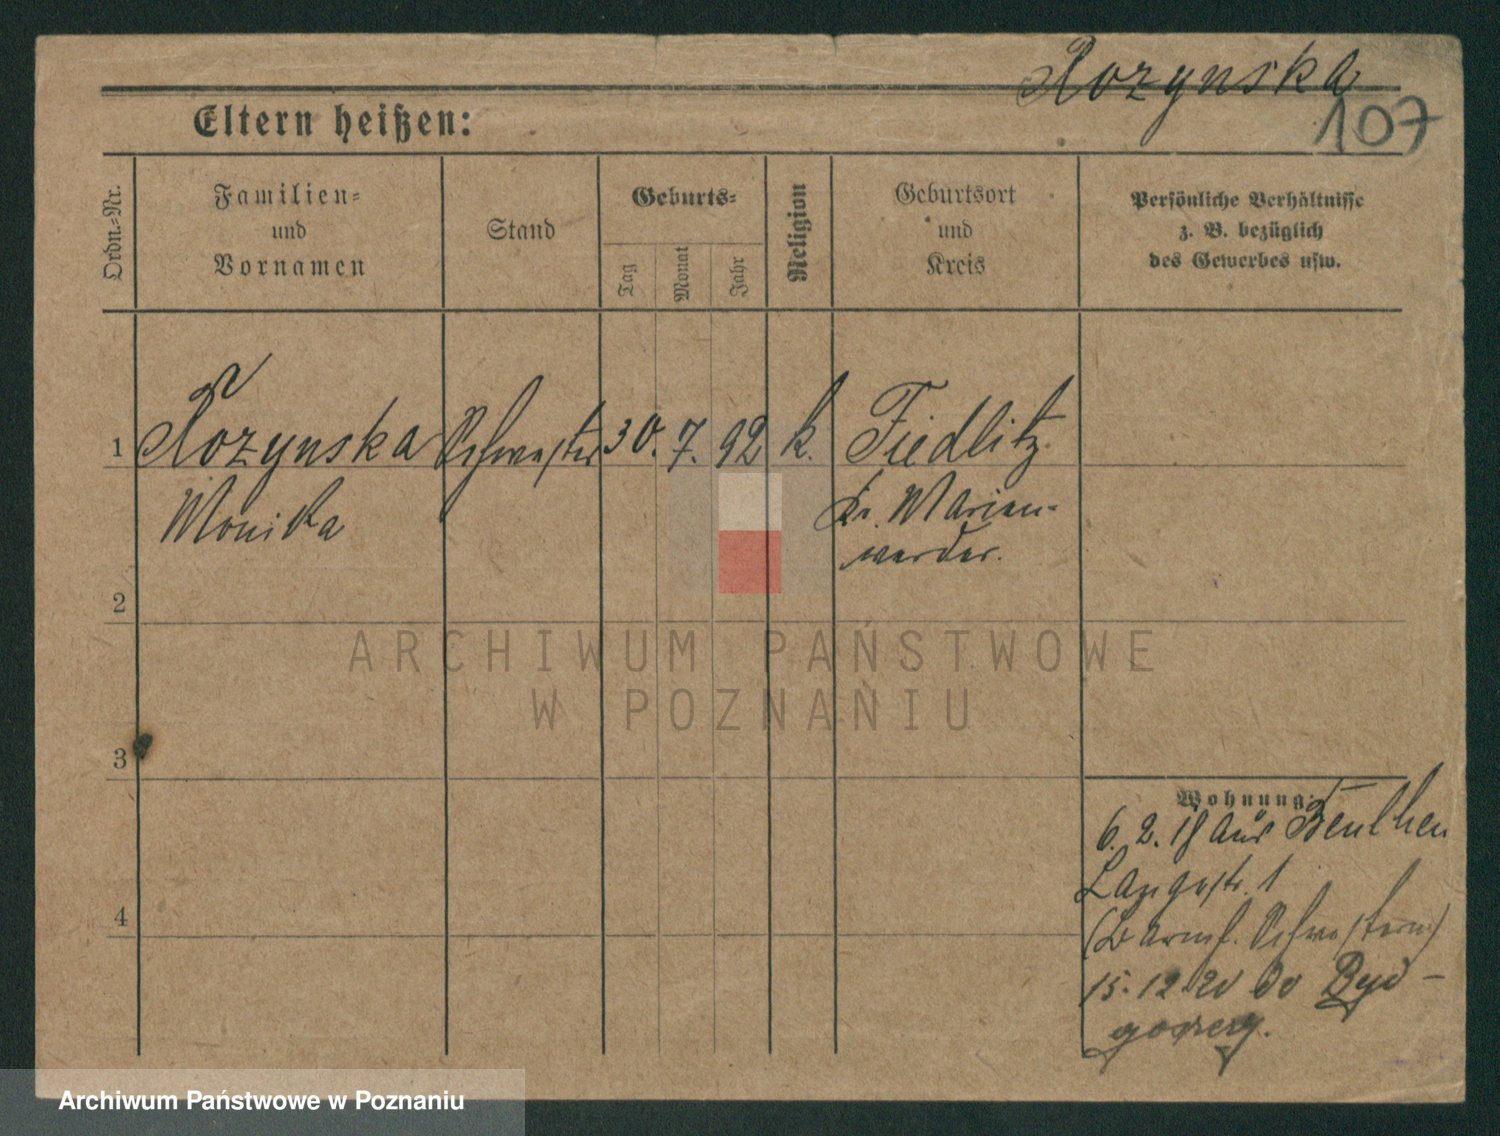 Rozynska
107
Eltern heißen:
Ordn.-Nr.
Familien-
und
Vornamen
Stand
Geburts-
Tag
Monat
Jahr
Religion
Geburtsort
und
Kreis
Persönliche Verhältnisse
z. B. bezüglich
des Gewerbes usw.
1 Rozynska Schwester 30. 7. 92 k. Fiedlitz
Monika Kr. Marien-
werder.
2
3
4
ARCHIWUM PAŃSTWOWE
W POZNANIU
Wohnung:
6. 2. 18 aus Beuthen
Langestr. 1
(Barmh. Schwestern)
15.12.20 Byd-
goszcz.
Archiwum Państwowe w Poznaniu